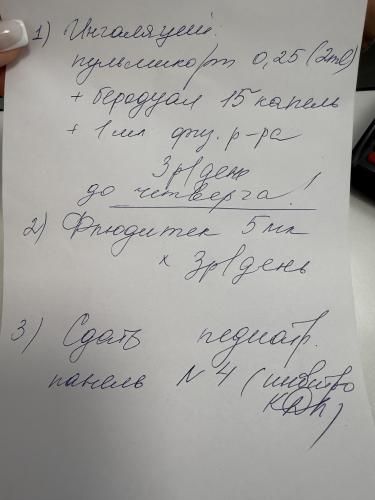 1) Ингаляции:
пульмикорт 0,25 (2ml)
+ беродуал 15 капель
+ 1 мл физ. р-ра
3р/день
до четверга!
2) Флюдитек 5 мл
х 3р/день
3) Сдать педиатр.
панель N4 (инвитро